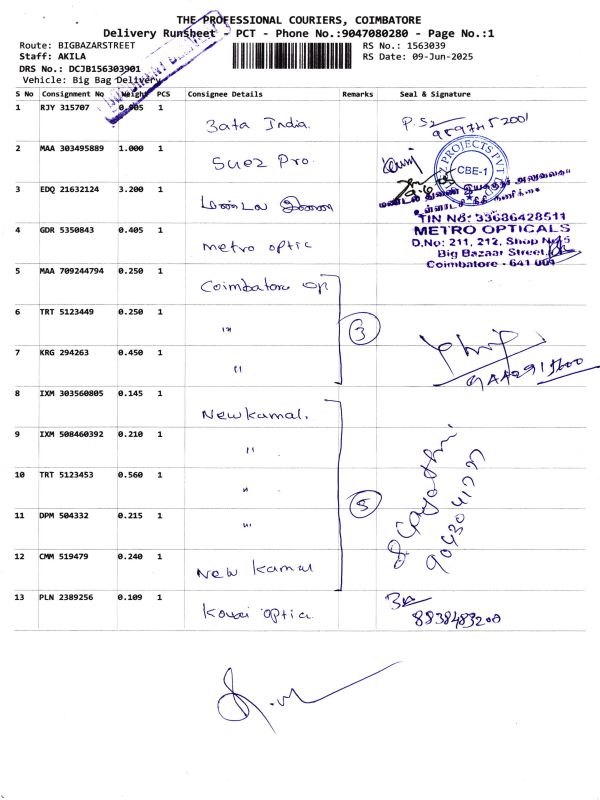 THE PROFESSIONAL COURIERS, COIMBATORE
Delivery Runsheet - PCT - Phone No.:9047080280 - Page No.:1
Route: BIGBAZARSTREET
RS No.: 1563039
Staff: AKILA
RS Date: 09-Jun-2025
DRS No.: DCJB156303901
Vehicle: Big Bag Delivery
S No Consignment No Weight PCS Consignee Details Remarks Seal & Signature
1 RJY 315707 0.905 1 Bata India.
2 MAA 303495889 1.000 1 Suez Pro.
PROJECTS PVT
CBE-1
3 EDQ 21632124 3.200 1
TIN No: 33686428511
4 GDR 5350843 0.405 1 metro optic
METRO OPTICALS
D.No: 211, 212, Shop No
Big Bazaar Street,
Coimbatore - 641 001
5 MAA 709244794 0.250 1 Coimbatore op
6 TRT 5123449 0.250 1 "
3
7 KRG 294263 0.450 1 "
8 IXM 303560805 0.145 1 New kamal.
9 IXM 508460392 0.210 1 "
10 TRT 5123453 0.560 1 "
5
11 DPM 504332 0.215 1 "
12 CMM 519479 0.240 1 New kamal
13 PLN 2389256 0.109 1 Kovai optic.
8838483200